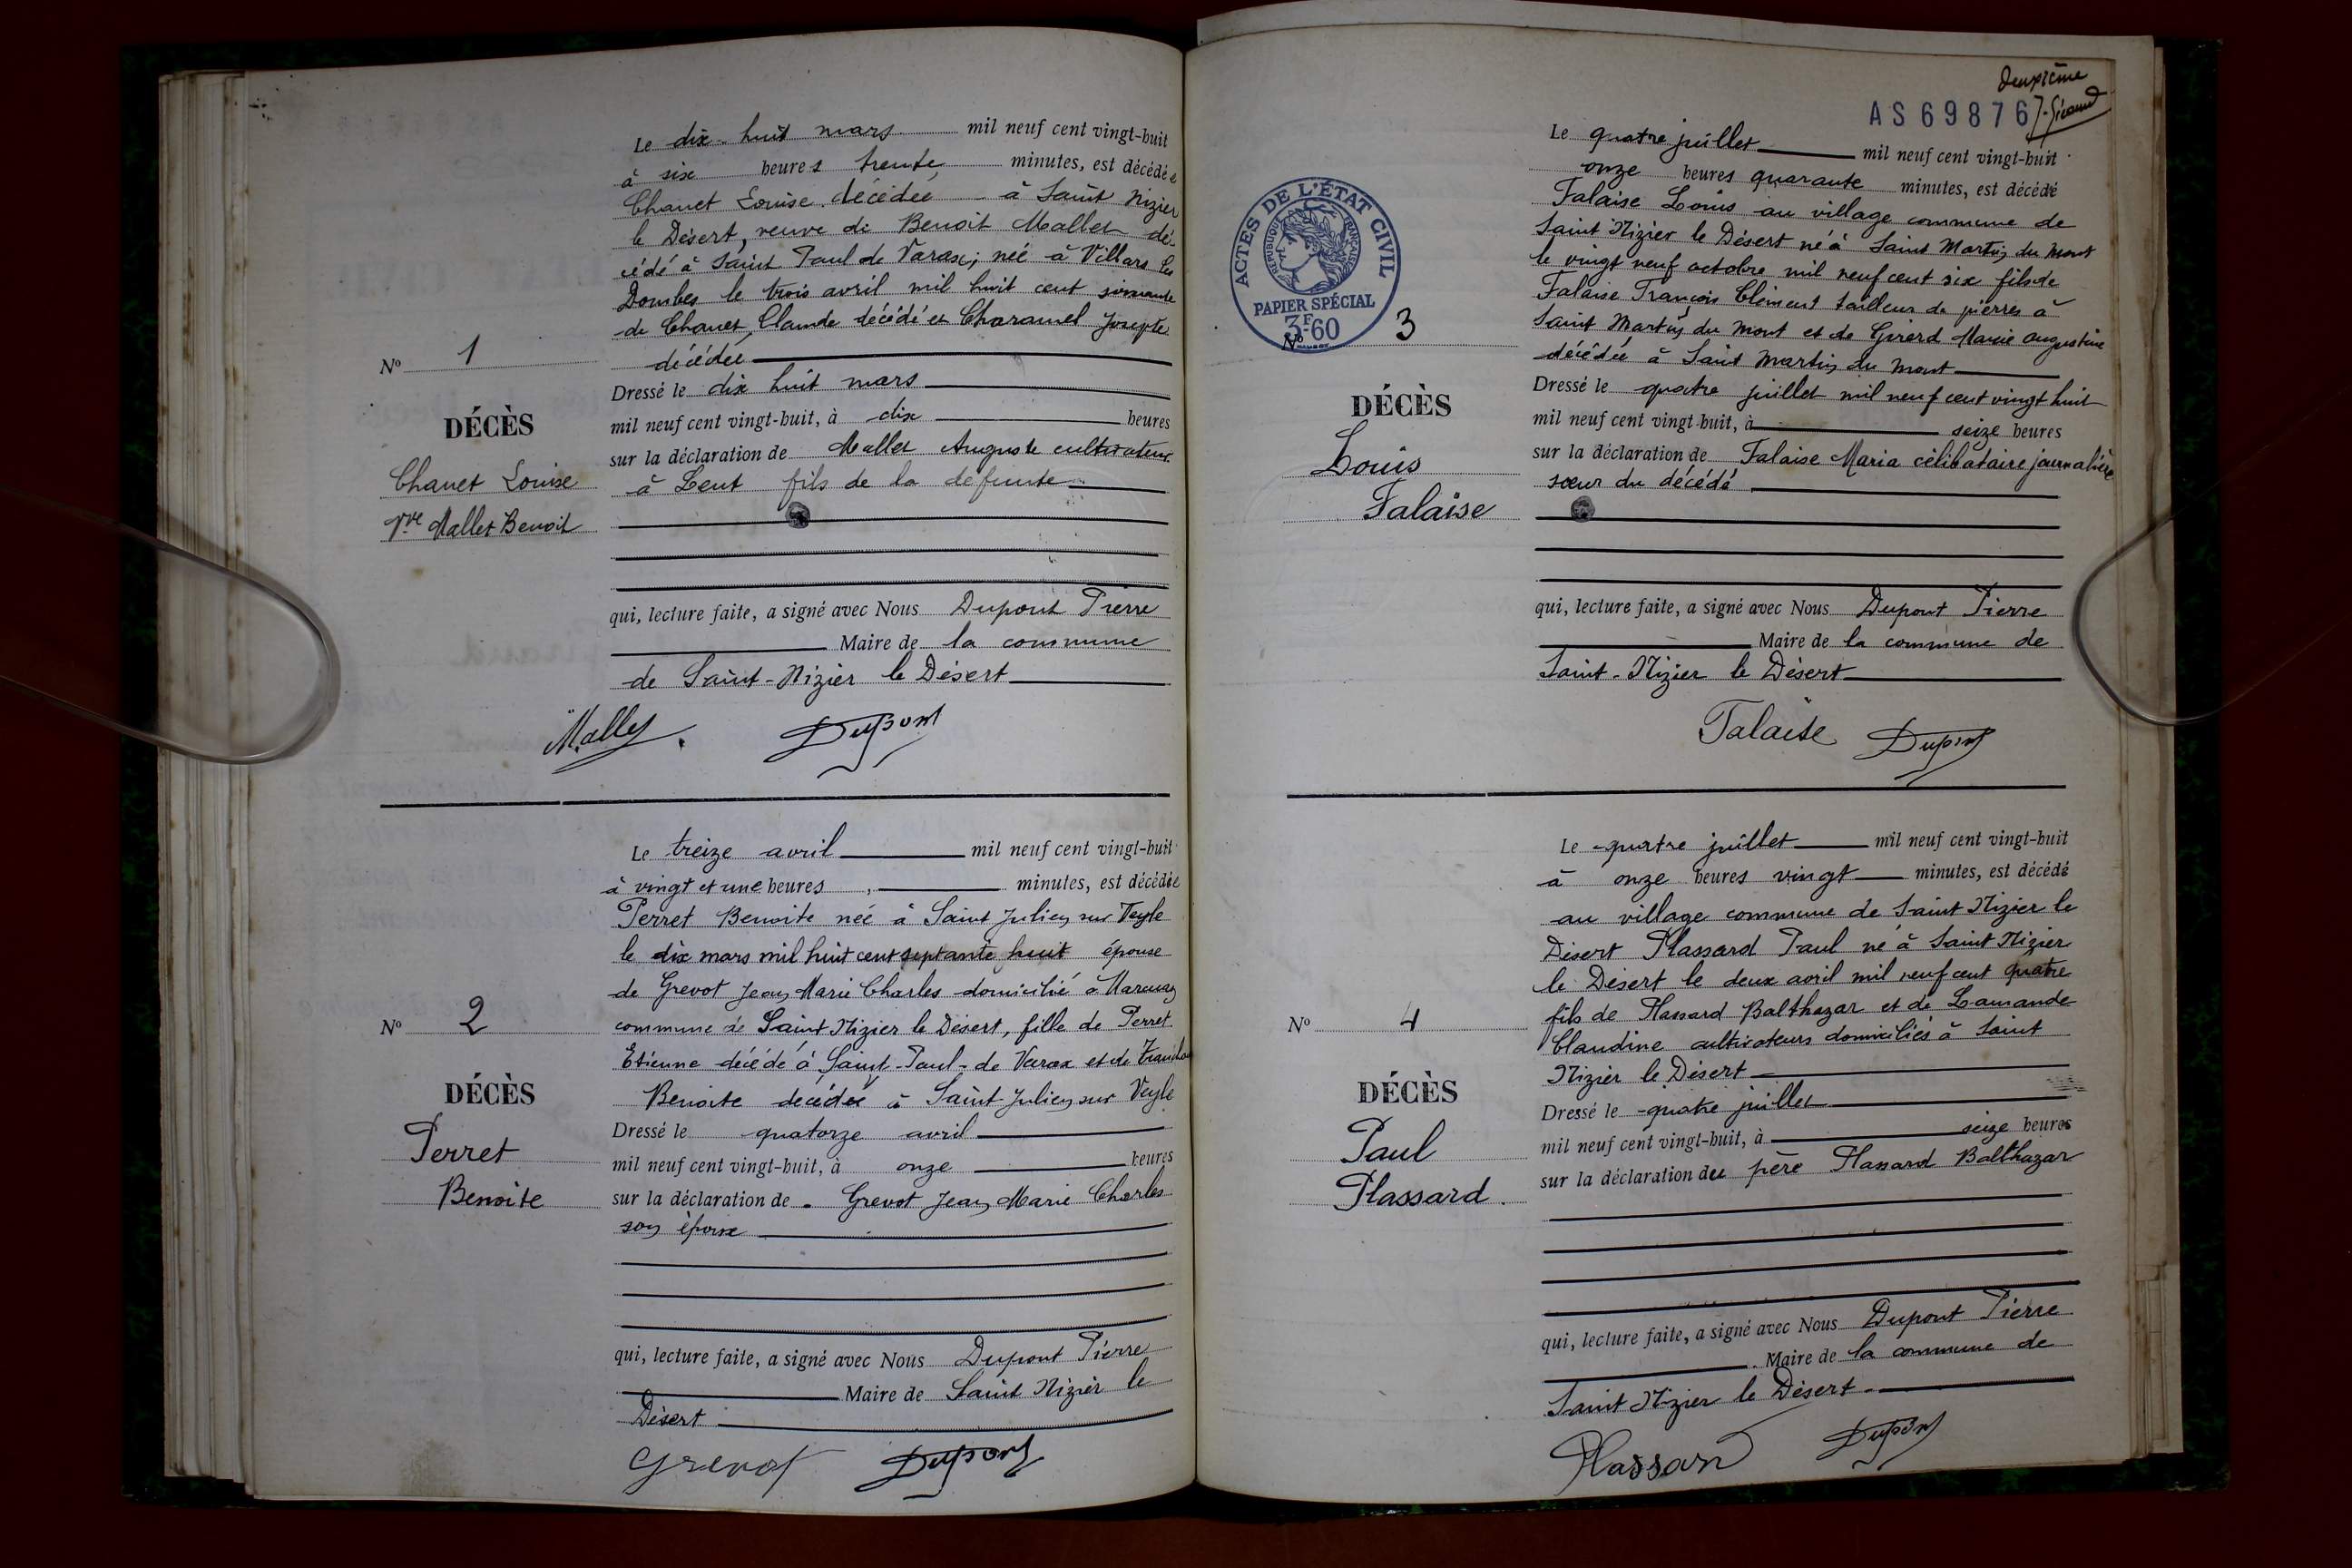 Le dix-huit mars mil neuf cent vingt-huit
à six heures trente minutes, est décédée
Chanet Louise décédée à Saint Nizier
le Désert, veuve de Benoit Mallet dé-
cédé à Saint Paul de Varax; née à Villars les
Dombes le trois avril mil huit cent
de Chanet Claude décédé et Charamel Josepte
décédée
Nº 1
DÉCÈS
Chanet Louise
Vve Mallet Benoit
Dressé le dix huit mars
mil neuf cent vingt-huit, à dix heures
sur la déclaration de Mallet Auguste cultivateur
à Lent fils de la defunte
qui, lecture faite, a signé avec Nous Dupont Pierre
Maire de la commune
de Saint-Nizier le Désert
Mallet Dupont
Le treize avril mil neuf cent vingt-huit
à vingt et une heures, minutes, est décédée
Perret Benoite née à Saint Julien sur Veyle
le dix mars mil huit cent septante huit épouse
de Grevot Jean Marie Charles domicilié à
commune de Saint Nizier le Désert, fille de Perret
Etienne décédé à Saint-Paul-de Varax et de
Benoite décédée à Saint-Julien sur Veyle
Nº 2
DÉCÈS
Perret
Benoite
Dressé le quatorze avril
mil neuf cent vingt-huit, à onze heures
sur la déclaration de Grevot Jean Marie Charles
son époux
qui, lecture faite, a signé avec Nous Dupont Pierre
Maire de Saint Nizier le
Désert
Grevot Dupont
Deuxième
AS69876 J. Giraud
ACTES DE L'ÉTAT CIVIL
RÉPUBLIQUE FRANÇAISE
PAPIER SPÉCIAL
3F60
Le quatre juillet mil neuf cent vingt-huit
onze heures quarante minutes, est décédé
Falaise Louis au village commune de
Saint Nizier le Désert né à Saint Martin du Mont
le vingt neuf octobre mil neuf cent six fils de
Falaise François Clément tailleur de pierres à
Saint Martin du Mont et de Girerd Marie Augustine
décédée à Saint Martin du Mont
Nº 3
DÉCÈS
Louis
Falaise
Dressé le quatre juillet mil neuf cent vingt huit
mil neuf cent vingt-huit, à seize heures
sur la déclaration de Falaise Maria célibataire journalière
sœur du décédé
qui, lecture faite, a signé avec Nous Dupont Pierre
Maire de la commune de
Saint-Nizier le Désert
Falaise Dupont
Le quatre juillet mil neuf cent vingt-huit
à onze heures vingt minutes, est décédé
au village commune de Saint Nizier le
Désert Plassard Paul né à Saint Nizier
le Désert le deux avril mil neuf cent quatre
fils de Plassard Balthazar et de Lamande
Claudine cultivateurs domiciliés à Saint
Nizier le Désert
Nº 4
DÉCÈS
Paul
Plassard.
Dressé le quatre juillet
mil neuf cent vingt-huit, à seize heures
sur la déclaration du père Plassard Balthazar
qui, lecture faite, a signé avec Nous Dupont Pierre
Maire de la commune de
Saint Nizier le Désert
Plassard Dupont